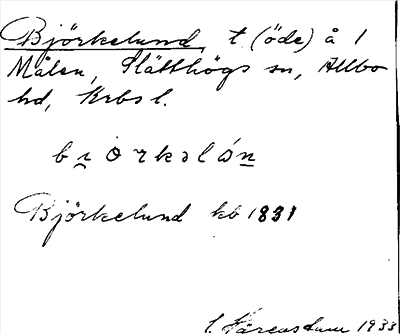 Björkelund, t (öde) å 1
Målen, Slätthögs sn, Allbo
hd, Krbs l.
bıorkəlón
Björkelund kb 1831
1933